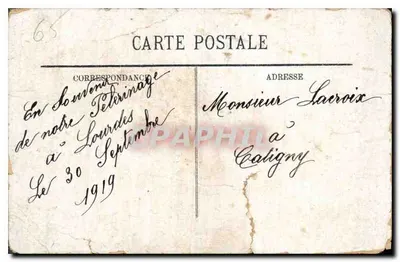 65
CARTE POSTALE
CORRESPONDANCE
En Souvenir
de notre Pélerinage
à Lourdes
Le 30 Septembre
1919
ADRESSE
Monsieur Lacroix
à
Caligny
PAPHIL